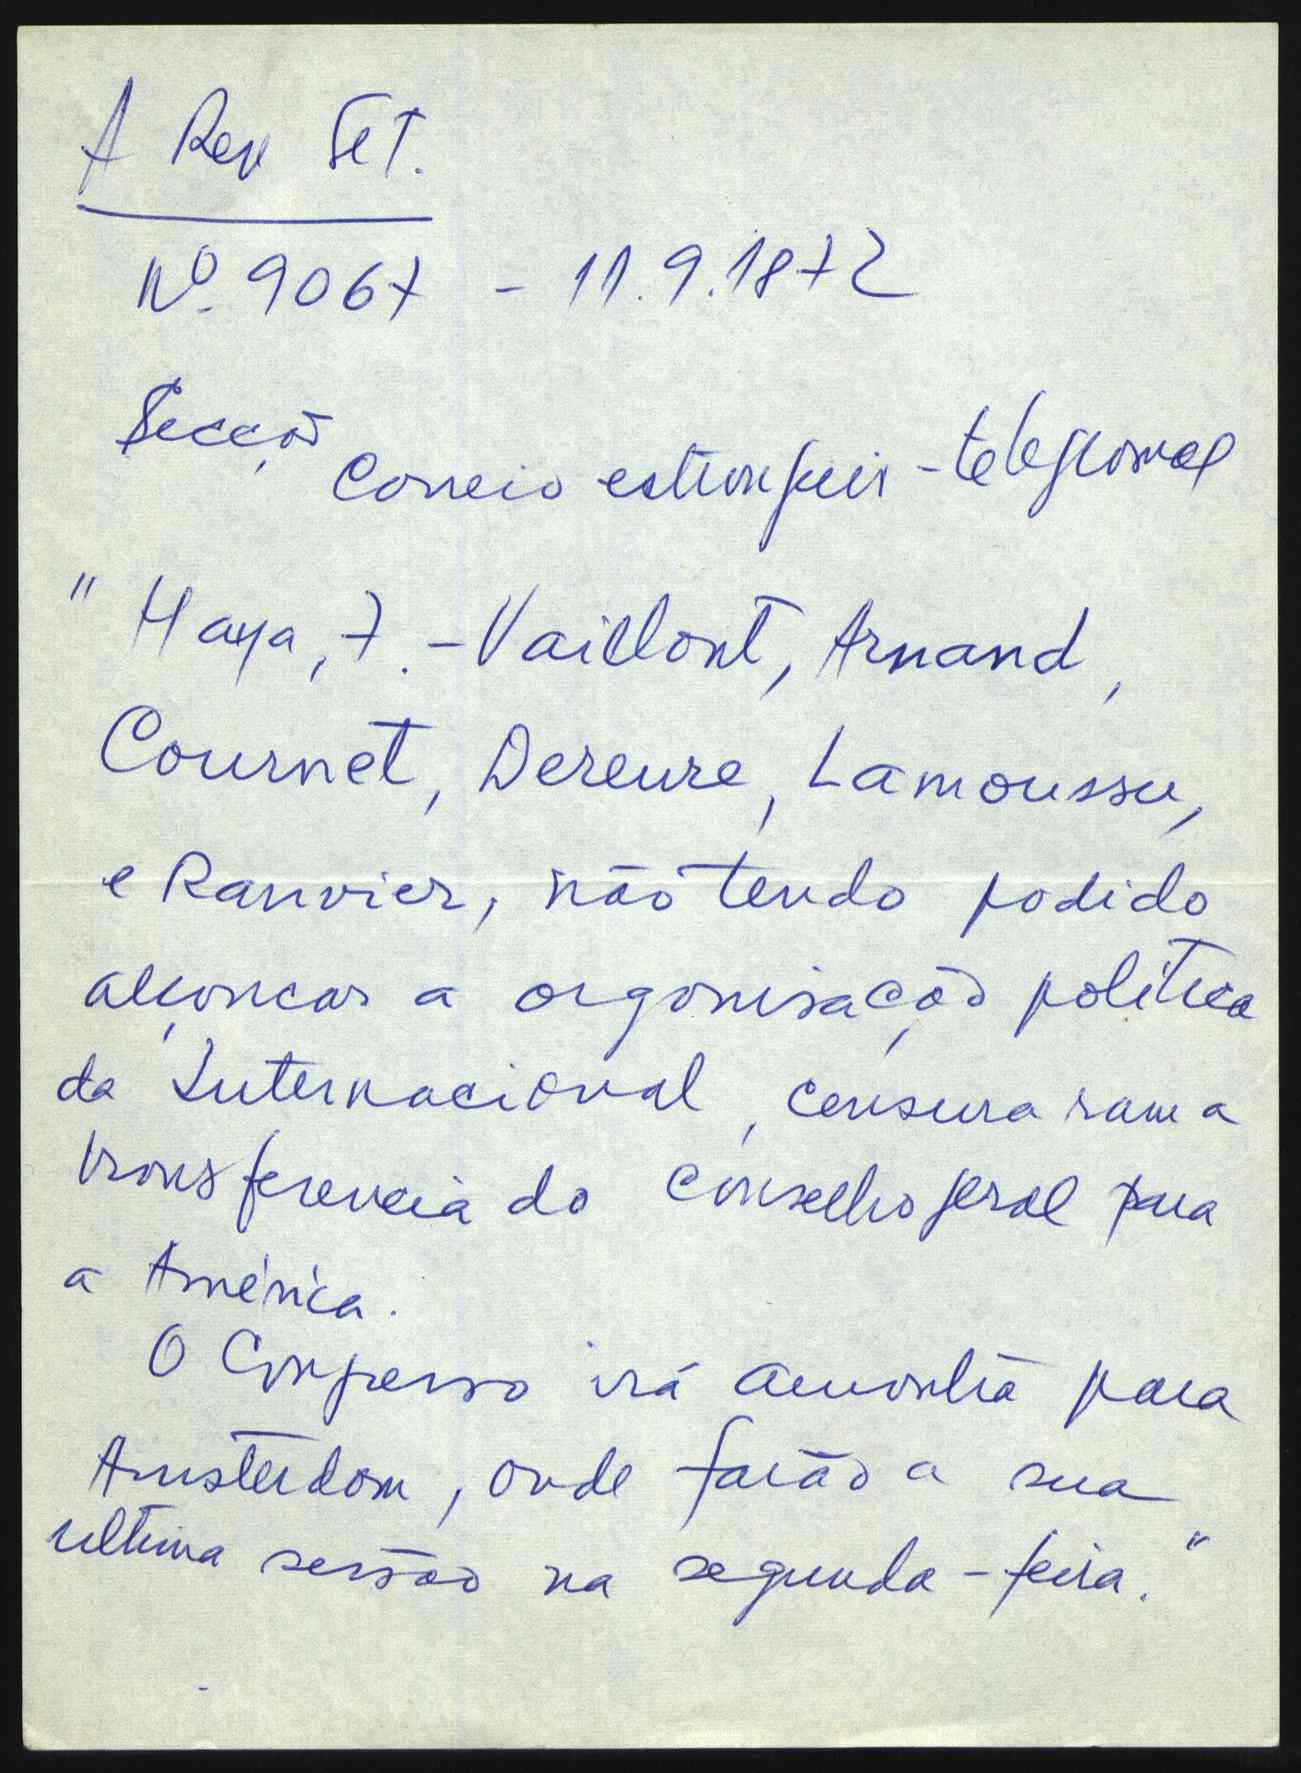 A Rev Set.
Nº. 9067 - 11.9.1872
Secção
Correio estrangeiro - telegramas
"Haya, 7. - Vaillant, Arnand,
Cournet, Dereure, Lamoussu,
e Ranvier, não tendo podido
alcançar a organisação politica
da Internacional, censuraram a
transferencia do Conselho geral para
a América.
O Congresso irá amanhã para
Amsterdam, onde farão a sua
ultima sessão na segunda-feira."